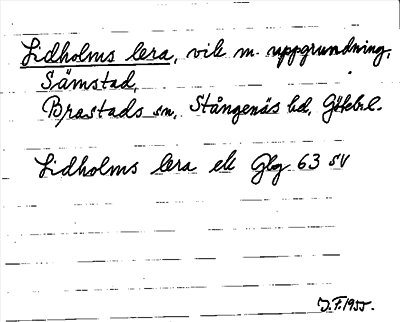 Lidholms lera, vik m. uppgrundning,
Sämstad,
Brastads sn, Stångenäs hd, Göteb. l.
Lidholms lera ek Gbg 63 SV
J.F. 1955.